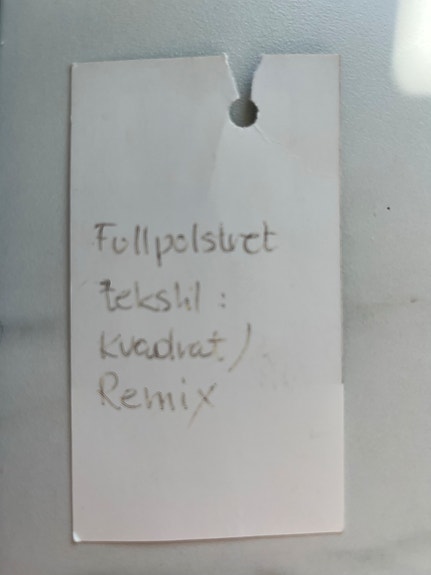 Fullpolstret
tekstil :
kvadrat /
Remix